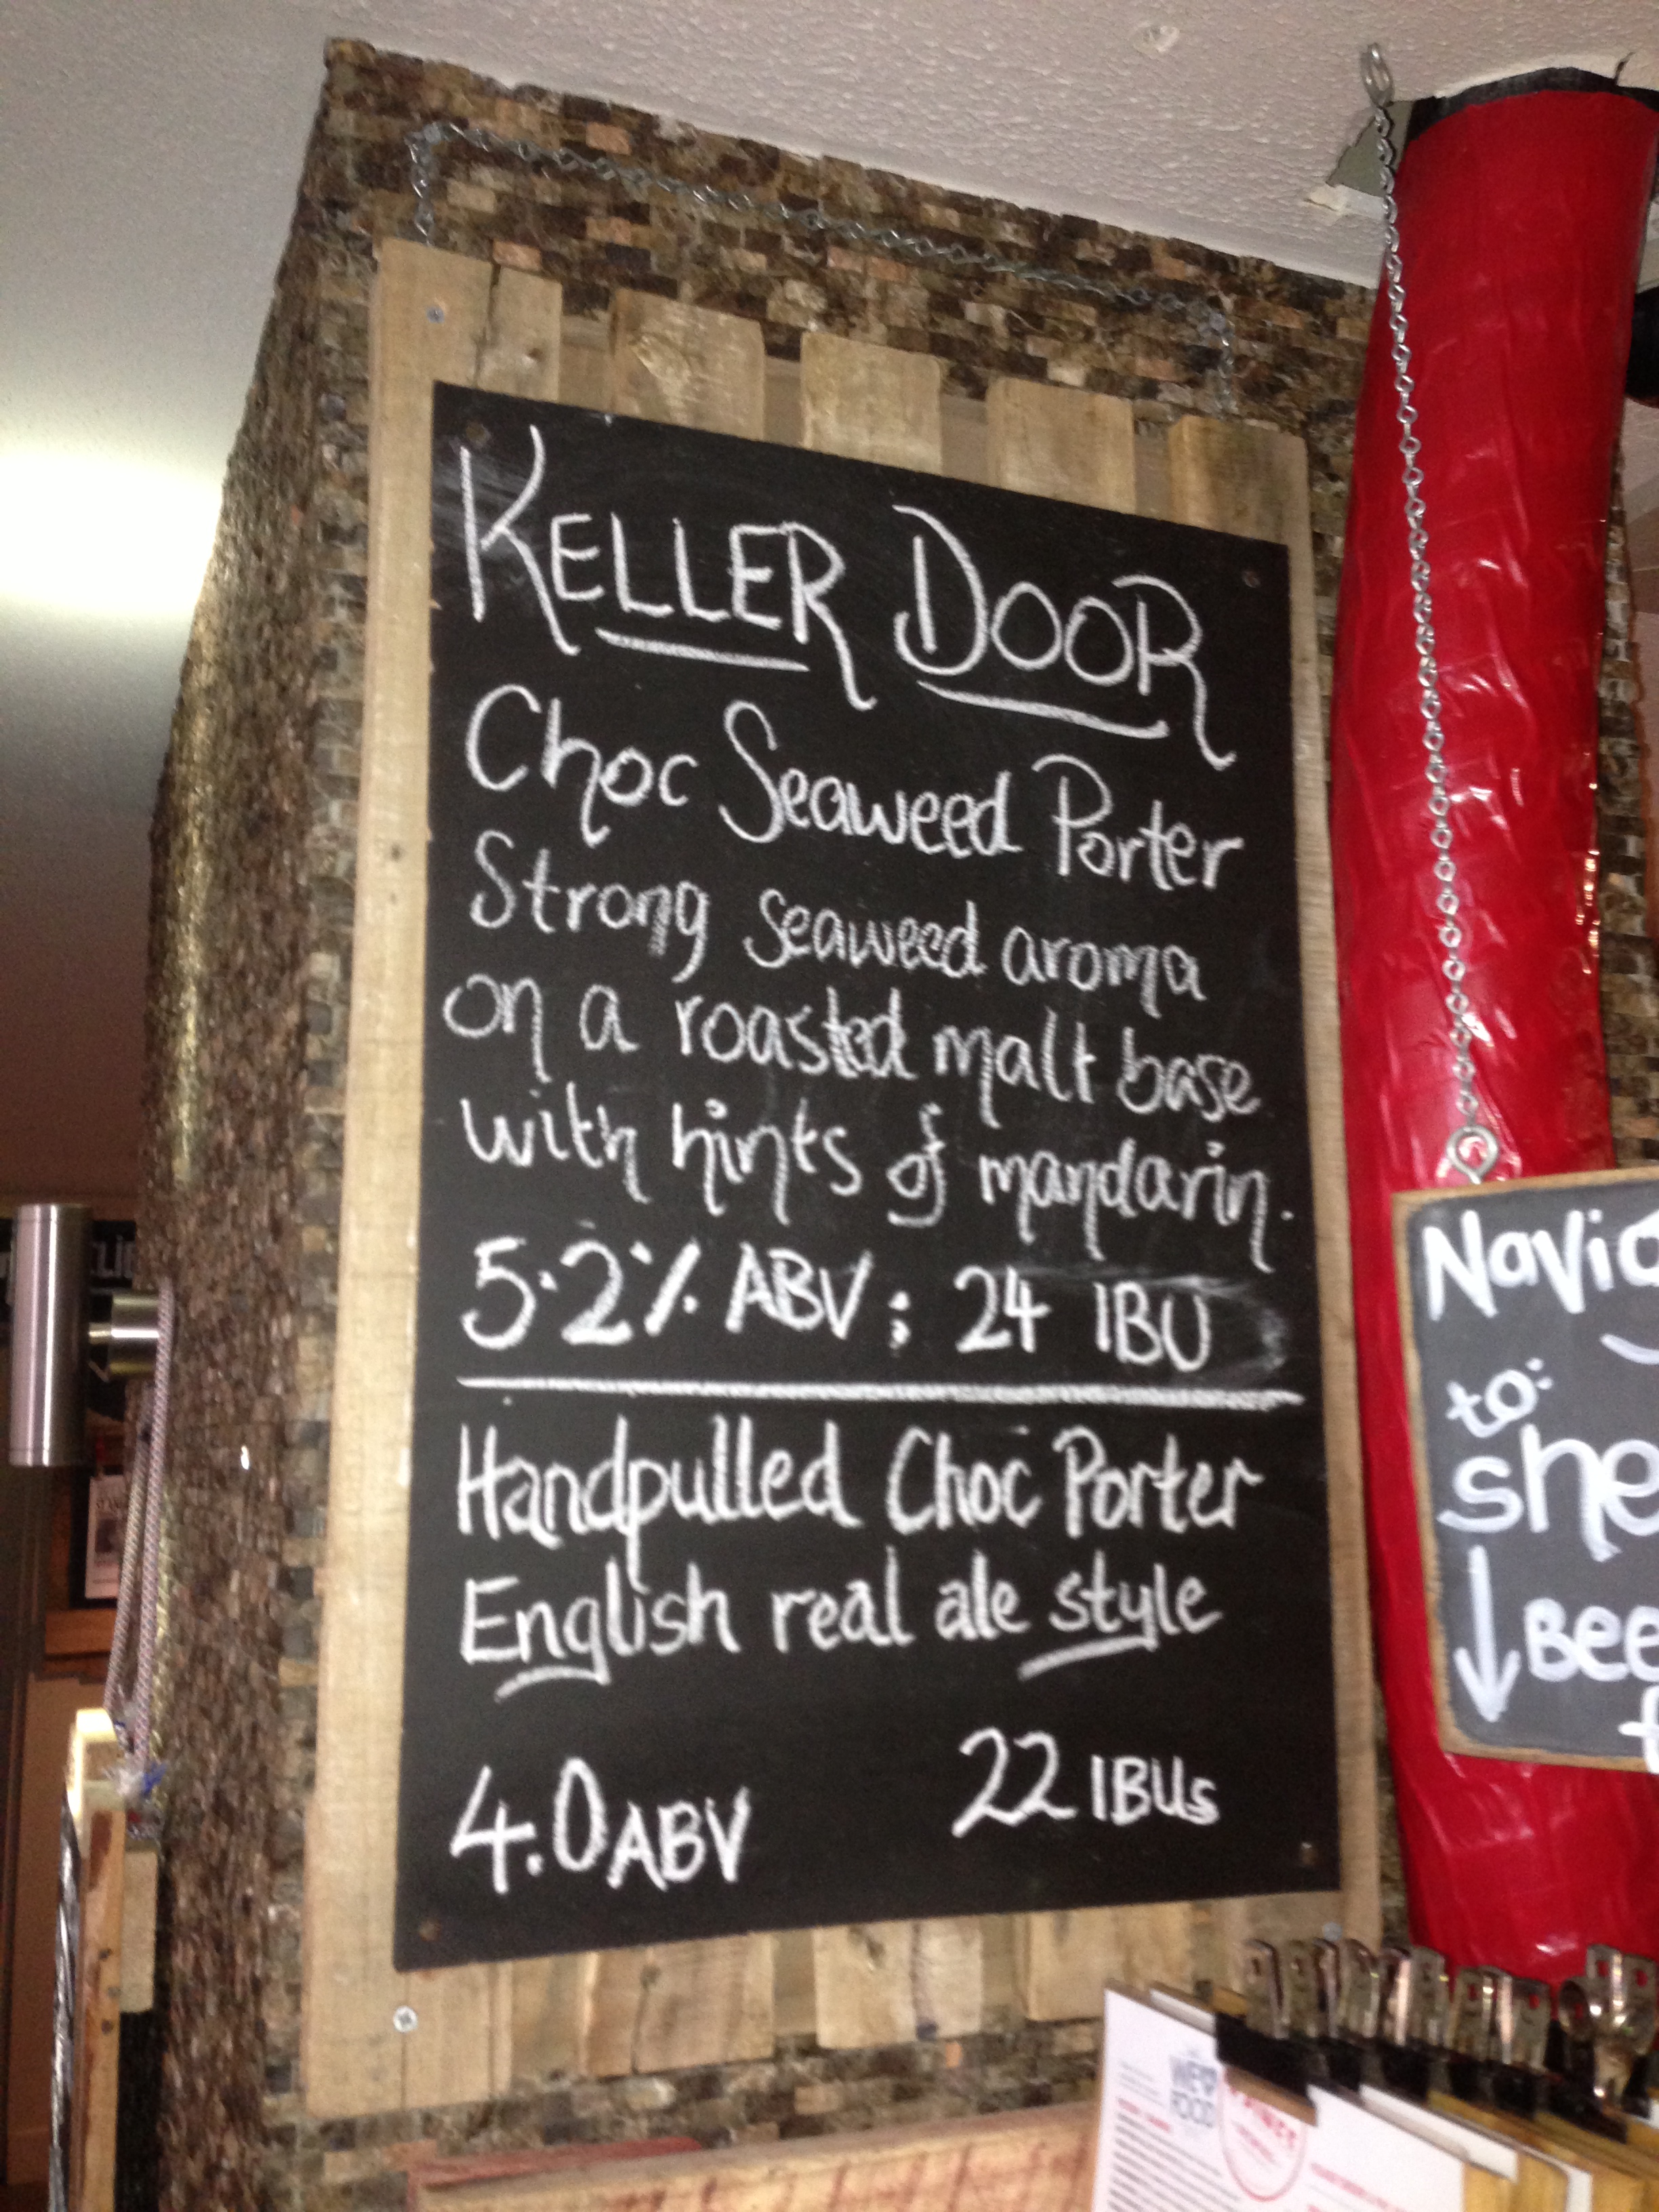 KELLER DOOR
Choc Seaweed Porter
Strong seaweed aroma
on a roasted malt base
with hints of mandarin.
5.2% ABV ; 24 IBU
Handpulled Choc Porter
English real ale style
4.0 ABV 22 IBUs
to:
WE
FOOD